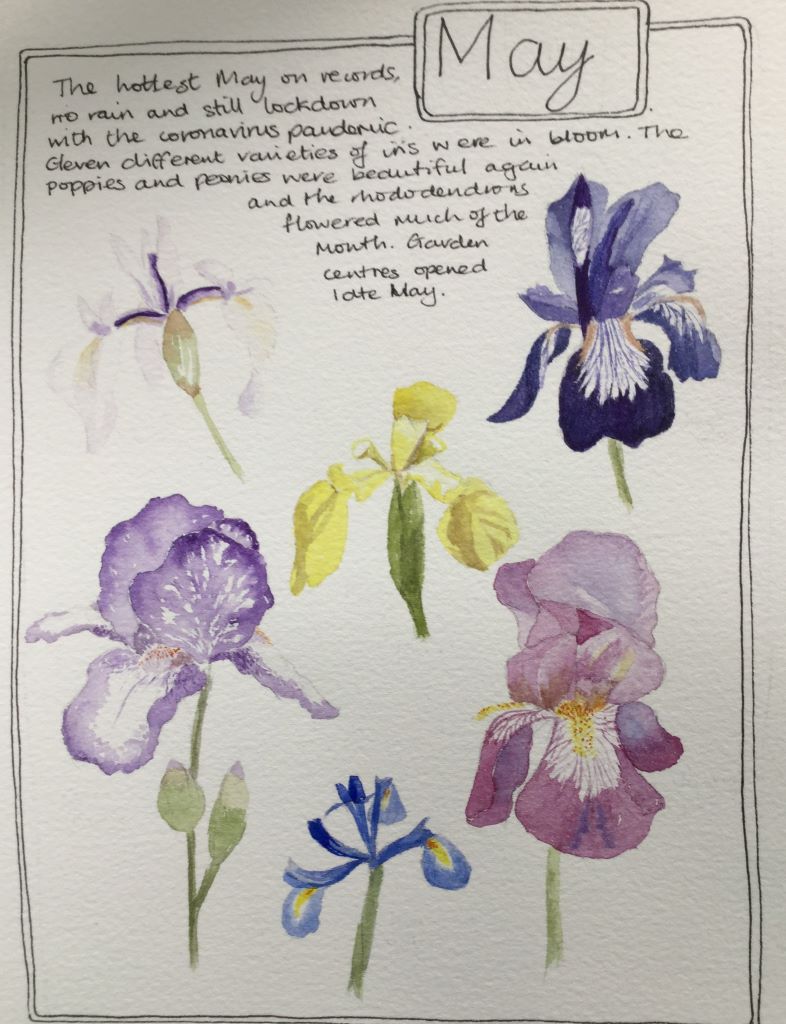 May
The hottest May on records,
no rain and still lockdown
with the coronavirus pandemic.
Eleven different varieties of iris were in bloom. The
poppies and peonies were beautiful again
and the rhododendrons
flowered much of the
month. Garden
centres opened
late May.